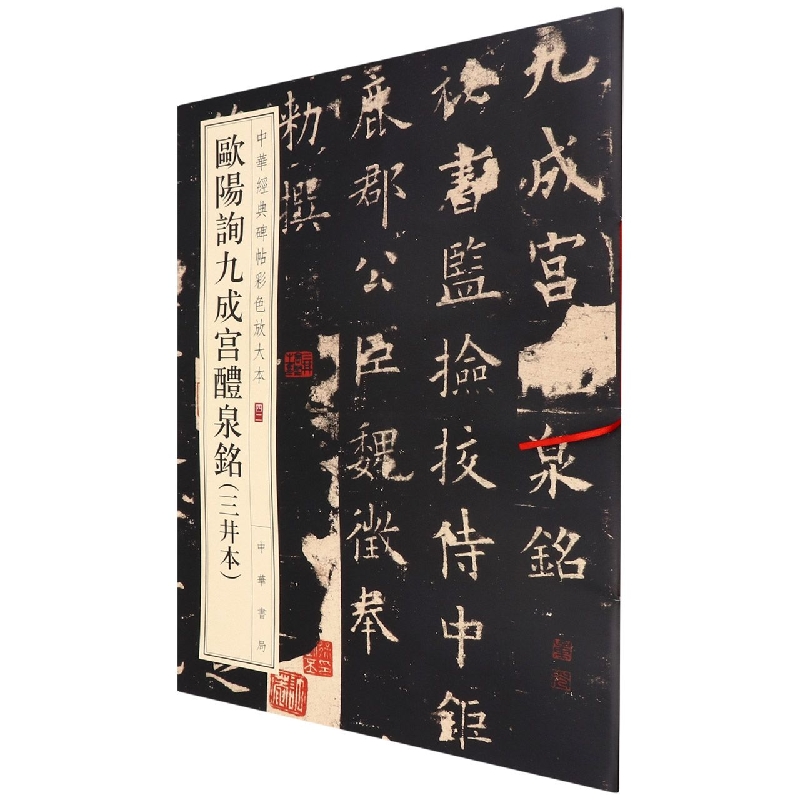 九成宮
泉銘
祕書監撿挍侍中鉅
鹿郡公臣魏徵奉
勅撰
中華經典碑帖彩色放大本
四二
中華書局
歐陽詢九成宮醴泉銘(三井本)
之